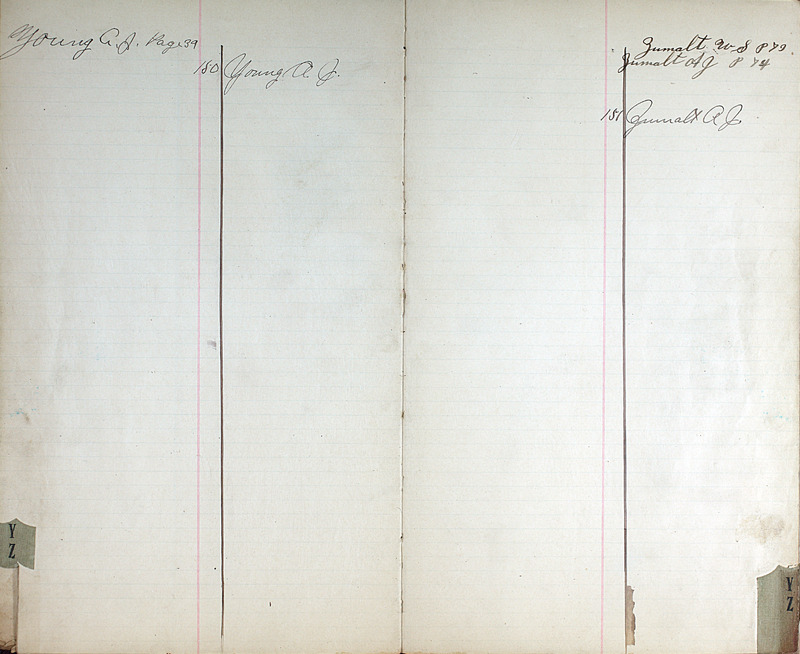 Young A. J. Page 39
180 Young A J.
Y
Z
Zumalt W-S P 79.
Zumalt A J P 74
181 Zumalt A J
Y
Z